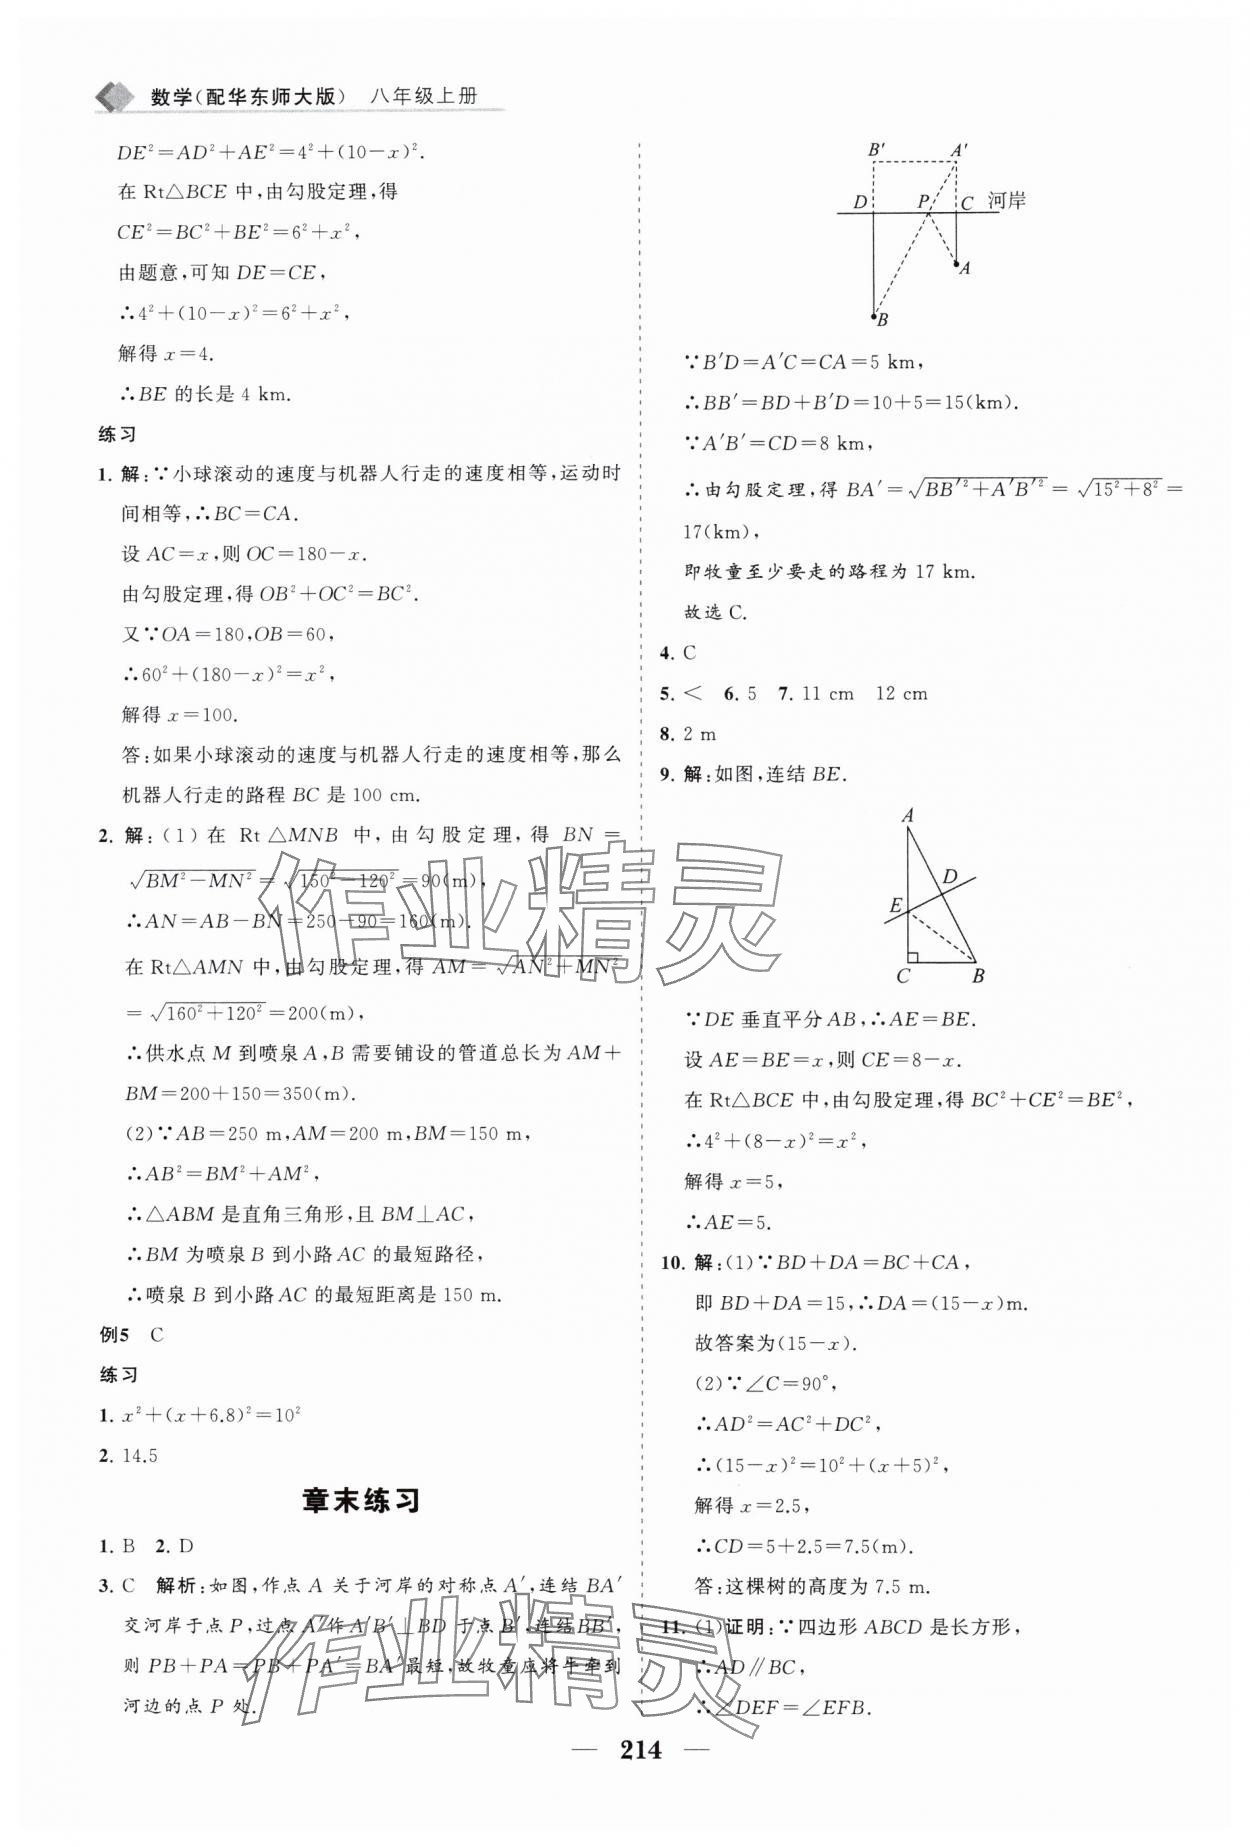 数学(配华东师大版) 八年级上册
DE²=AD²+AE²=4²+(10-x)².
在 Rt△BCE 中,由勾股定理,得
CE²=BC²+BE²=6²+x²,
由题意,可知 DE=CE,
∴4²+(10-x)²=6²+x²,
解得 x=4.
∴BE 的长是 4 km.
练习
1. 解:∵小球滚动的速度与机器人行走的速度相等,运动时
间相等,∴BC=CA.
设 AC=x,则 OC=180-x.
由勾股定理,得 OB²+OC²=BC².
又∵OA=180,OB=60,
∴60²+(180-x)²=x²,
解得 x=100.
答:如果小球滚动的速度与机器人行走的速度相等,那么
机器人行走的路程 BC 是 100 cm.
2. 解:(1)在 Rt△MNB 中,由勾股定理,得 BN=
√(BM²-MN²)=√(150²-120²)=90(m),
∴AN=AB-BN=250-90=160(m).
在 Rt△AMN 中,由勾股定理,得 AM=√(AN²+MN²)
=√(160²+120²)=200(m),
∴供水点 M 到喷泉 A,B 需要铺设的管道总长为 AM+
BM=200+150=350(m).
(2)∵AB=250 m,AM=200 m,BM=150 m,
∴AB²=BM²+AM²,
∴△ABM 是直角三角形,且 BM⊥AC,
∴BM 为喷泉 B 到小路 AC 的最短路径,
∴喷泉 B 到小路 AC 的最短距离是 150 m.
例5 C
练习
1. x²+(x+6.8)²=10²
2. 14.5
章末练习
1. B 2. D
3. C 解析:如图,作点 A 关于河岸的对称点 A′,连结 BA′
交河岸于点 P,过点 A′作 A′B′⊥BD 于点 B′,连结BB′,
则 PB+PA=PB+PA′=BA′最短,故牧童应将牛牵到
河边的点 P 处.
B′ A′
D P C 河岸
A
B
∵B′D=A′C=CA=5 km,
∴BB′=BD+B′D=10+5=15(km).
∵A′B′=CD=8 km,
∴由勾股定理,得 BA′=√(BB′²+A′B′²)=√(15²+8²)=
17(km),
即牧童至少要走的路程为 17 km.
故选 C.
4. C
5. < 6. 5 7. 11 cm 12 cm
8. 2 m
9. 解:如图,连结 BE.
A
D
E
C B
∵DE 垂直平分 AB,∴AE=BE.
设 AE=BE=x,则 CE=8-x.
在 Rt△BCE 中,由勾股定理,得 BC²+CE²=BE²,
∴4²+(8-x)²=x²,
解得 x=5,
∴AE=5.
10. 解:(1)∵BD+DA=BC+CA,
即 BD+DA=15,∴DA=(15-x)m.
故答案为(15-x).
(2)∵∠C=90°,
∴AD²=AC²+DC²,
∴(15-x)²=10²+(x+5)²,
解得 x=2.5,
∴CD=5+2.5=7.5(m).
答:这棵树的高度为 7.5 m.
11. (1)证明:∵四边形 ABCD 是长方形,
∴AD∥BC,
∴∠DEF=∠EFB.
作业精灵
作业精灵
— 214 —